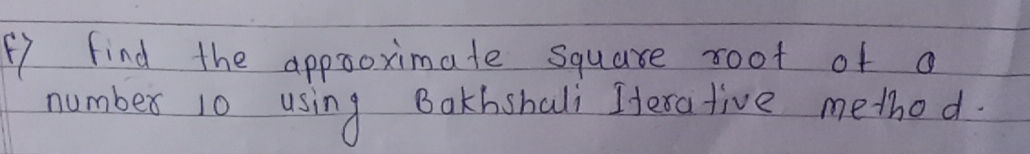 F) find the approximate square root of a
number 10 using Bakhshali Iterative method.